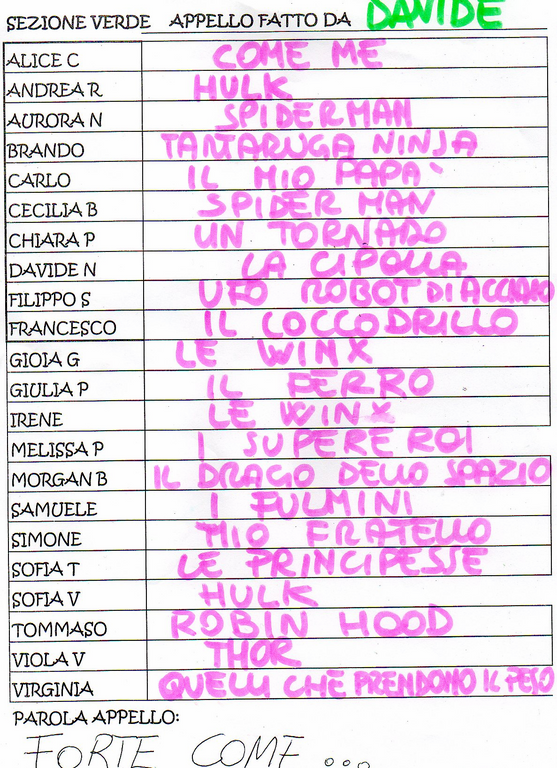 SEZIONE VERDE APPELLO FATTO DA DAVIDE
ALICE C COME ME
ANDREA R HULK
AURORA N SPIDERMAN
BRANDO TARTARUGA NINJA
CARLO IL MIO PAPA'
CECILIA B SPIDER MAN
CHIARA P UN TORNADO
DAVIDE N LA CIPOLLA
FILIPPO S UFO ROBOT DI ACCIAIO
FRANCESCO IL COCCODRILLO
GIOIA G LE WINX
GIULIA P IL FERRO
IRENE LE WINX
MELISSA P I SUPEREROI
MORGAN B IL DRAGO DELLO SPAZIO
SAMUELE I FULMINI
SIMONE MIO FRATELLO
SOFIA T LE PRINCIPESSE
SOFIA V HULK
TOMMASO ROBIN HOOD
VIOLA V THOR
VIRGINIA QUELLI CHE PRENDONO IL PESO
PAROLA APPELLO:
FORTE COME ...